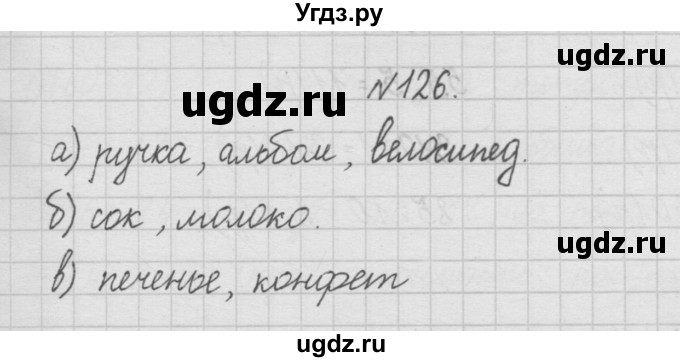 Угдз.ру
№126.
ugdz.ru
ugdz.ru
а) ручка, альбом, велосипед.
б) сок, молоко.
ugdz.ru
в) печенье, конфет
ugdz.ru